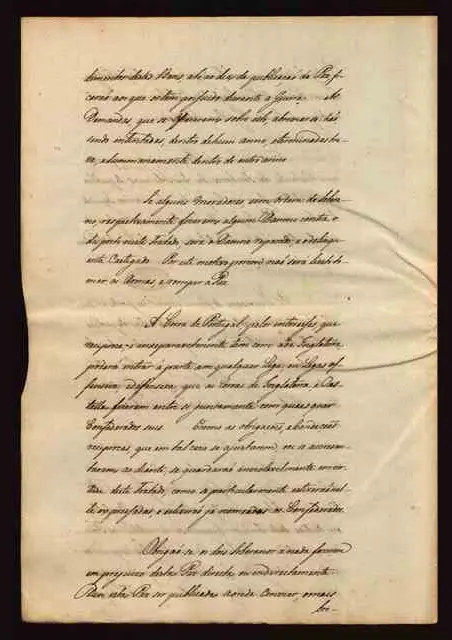 dimentos destes Bens, até ao dia da publicação da Paz fi-
carão aos que os tem possuido durante a Guerra. As
Demandas, que se fizerem sobre isto, abraunse haõ
sendo intentadas, dentro de hum anno, e terminadas bre-
ve, e summariamente dentro de outro anno
Se alguns moradores sem ordem do Sobera-
no, respectivamente fizerem algum Damno contra o
disposto neste Tratado, será o Damno reparado, e o delinqu-
ente Castigado. Por este motivo porem naõ será licito to-
mar as Armas, e romper a Paz
A Coroa de Portugal, pelos interesses que
reciproca, e inseparavelmente tem com a de Inglaterra
poderá entrar á parte em qualquer Liga, ou Ligas of-
fensiva, e defensiva que as Coroas de Inglaterra, e Cas-
tella fizerem entre si juntamente com quaes quer
Confederados seus Como as obrigações, e condições
reciprocas, que em tal caso se ajustarem, ou se accrescen-
tarem ao diante, se guardaraõ inviolavelmente em vir-
tude deste Tratado, como se particularmente estiveraõ nel-
le expressadas, e estiveraõ já nomeadas os Confederados.
Obrigaõ se os dois Soberanos a nada fazerem
em prejuizo desta Paz directa, ou indirectamente.
Para esta Paz ser publicada aonde convier, o mais
bre-